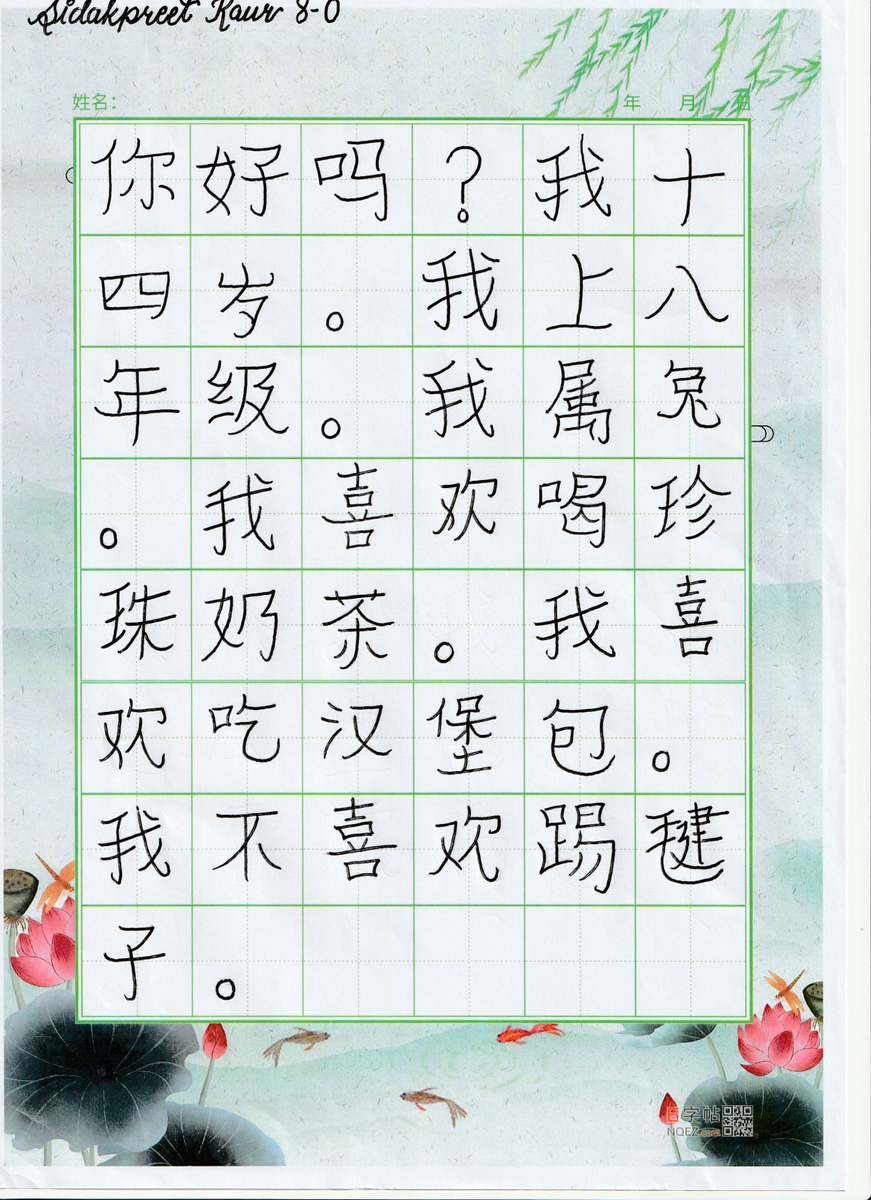 Sidakpreet Kaur 8-0
姓名: 年 月 日
你好吗？我十
四岁。我上八
年级。我属兔
。我喜欢喝珍
珠奶茶。我喜
欢吃汉堡包。
我不喜欢踢毽
子。
E字帖
NQEZ.com